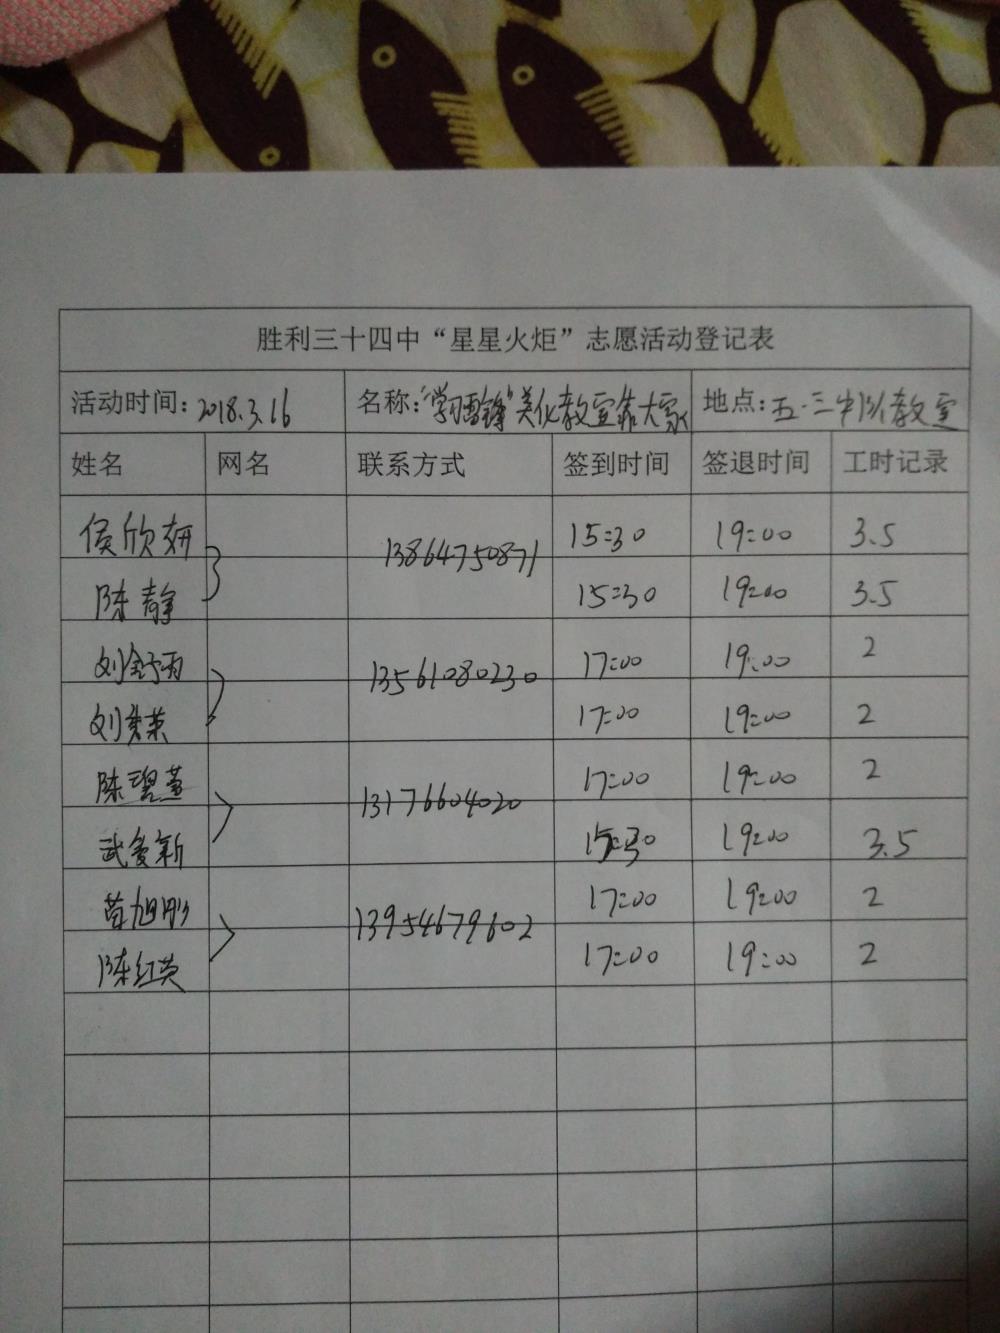 胜利三十四中“星星火炬”志愿活动登记表
活动时间：2018.3.16 名称：“学习雷锋”美化教室靠大家 地点：五·三中队教室
姓名 网名 联系方式 签到时间 签退时间 工时记录
侯欣妍 13864750871 15:30 19:00 3.5
陈静 15:30 19:00 3.5
刘舒雨 13561080230 17:00 19:00 2
刘秀荣 17:00 19:00 2
陈碧萱 13176604020 17:00 19:00 2
武爱新 15:30 19:00 3.5
苗旭彤 13954679602 17:00 19:00 2
陈红英 17:00 19:00 2